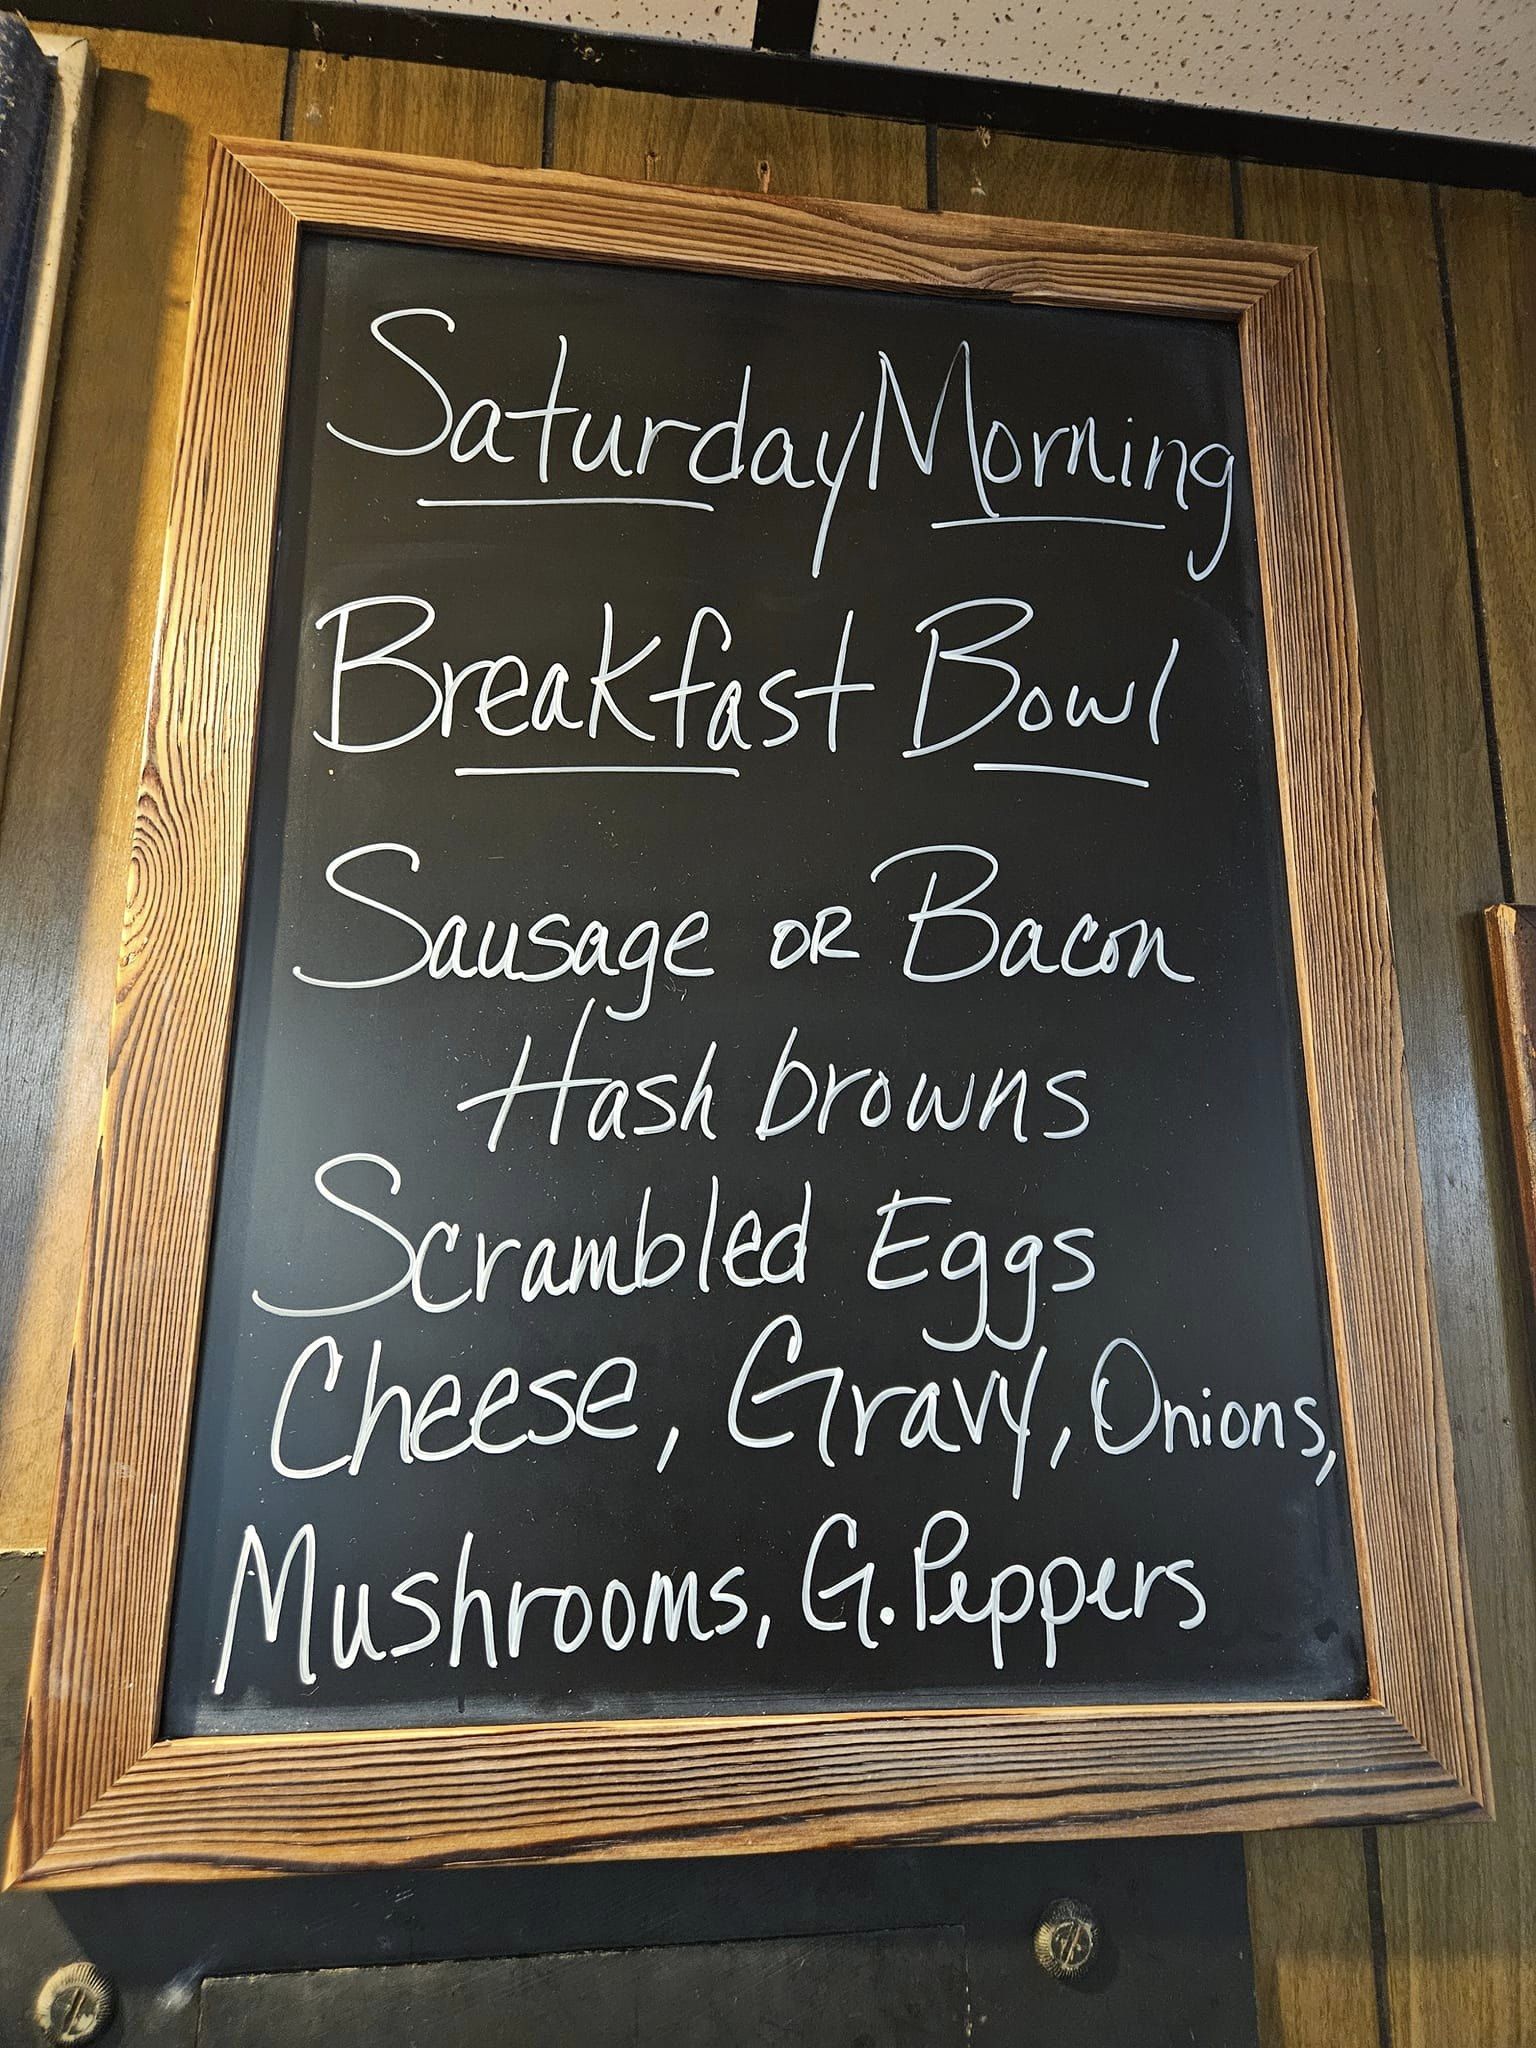 Saturday Morning
Breakfast Bowl
Sausage OR Bacon
Hash browns
Scrambled Eggs
Cheese, Gravy, Onions,
Mushrooms, G. Peppers